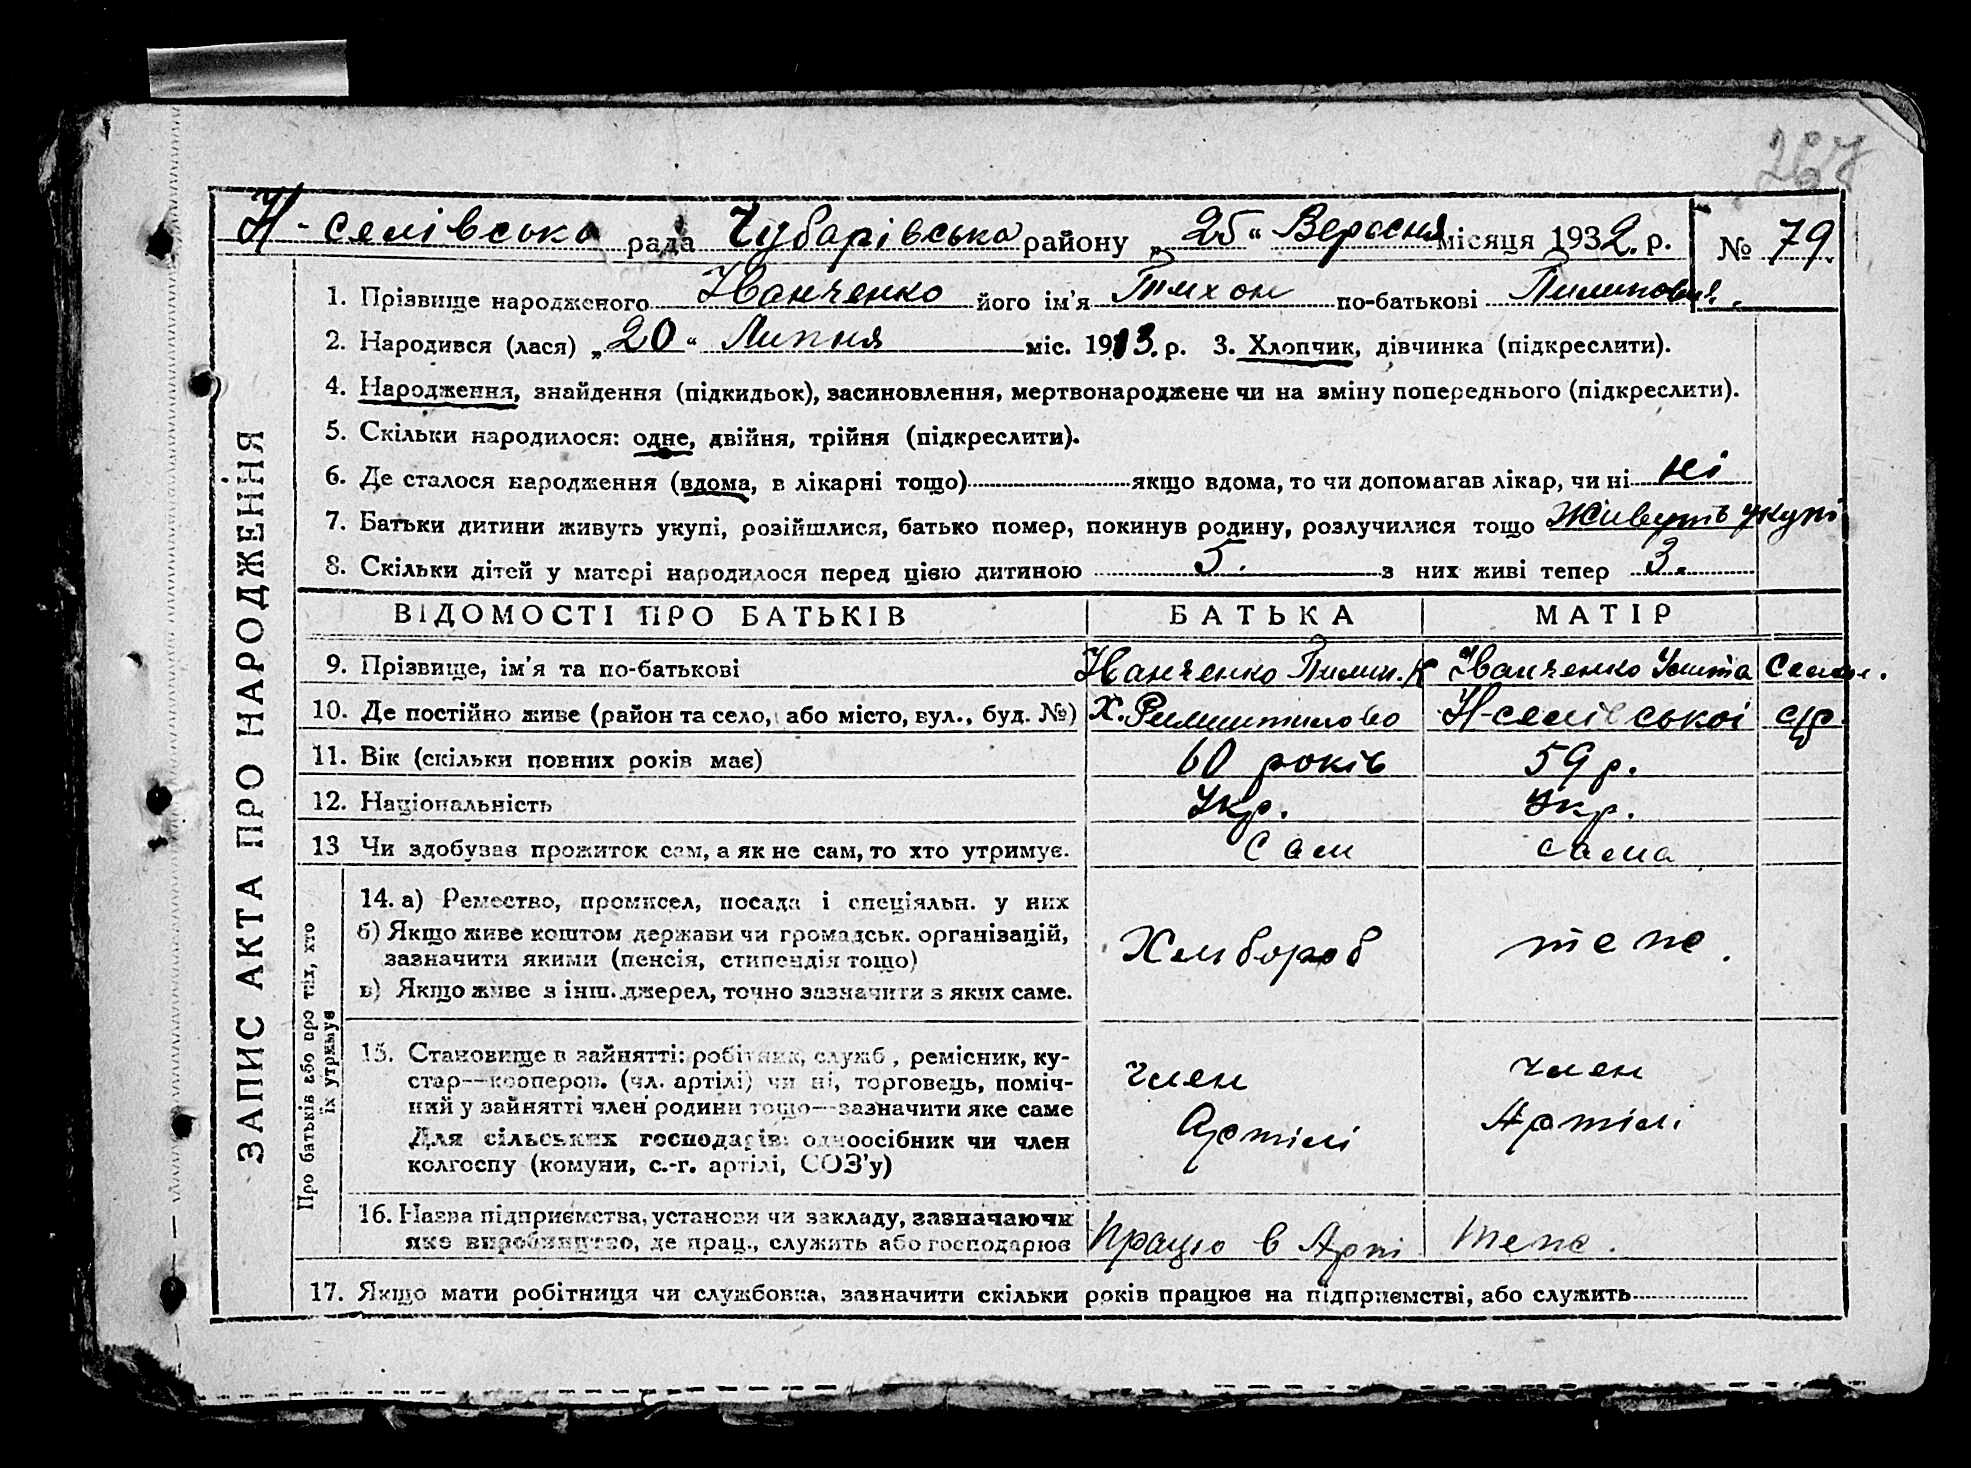 267
Н-селівська рада Чубарівська району „25“ Вересня місяця 1932. р. № 79
1. Прізвище народженого Іванченко його ім'я Тихон по-батькові Пилипович.
2. Народився (лася) „20“ Липня міс. 1913. р. 3. Хлопчик, дівчинка (підкреслити).
4. Народження, знайдення (підкидьок), засиновлення, мертвонароджене чи на зміну попереднього (підкреслити).
5. Скільки народилося: одне, двійня, трійня (підкреслити).
6. Де сталося народження (вдома, в лікарні тощо) якщо вдома, то чи допомагав лікар, чи ні ні
7. Батьки дитини живуть укупі, розійшлися, батько помер, покинув родину, розлучилися тощо Живуть укупі
8. Скільки дітей у матері народилося перед цією дитиною 5. з них живі тепер 3.
ЗАПИС АКТА ПРО НАРОДЖЕННЯ
ВІДОМОСТІ ПРО БАТЬКІВ БАТЬКА МАТІР
9. Прізвище, ім'я та по-батькові Іванченко Пилип. К Іванченко
10. Де постійно живе (район та село, або місто, вул., буд. №) Х. Н-селівської с/р.
11. Вік (скільки повних років має) 60 років 59 р.
12. Національність Укр. Укр.
13 Чи здобував прожиток сам, а як не сам, то хто утримує. Сам сама
Про батьків або про тих, хто їх утримує
14. а) Ремество, промисел, посада і спеціяльн. у них
б) Якщо живе коштом держави чи громадськ. організацій,
зазначити якими (пенсія, стипендія тощо)
в) Якщо живе з інш. джерел, точно зазначити з яких саме.
Хлібороб теж.
15. Становище в зайнятті: робітник, служб, ремісник, ку-
стар—кооперов. (чл. артілі) чи ні, торговець, поміч-
ний у зайнятті член родини тощо—зазначити яке саме
Для сільських господарів: одноосібник чи член
колгоспу (комуни, с.-г. артілі, СОЗ'у)
член член
Артілі Артілі
16. Назва підприємства, установи чи закладу, зазначаючи
яке виробництво, де прац., служить або господарює Працює в Арті теж.
17. Якщо мати робітниця чи службовка, зазначити скільки років працює на підприємстві, або служить